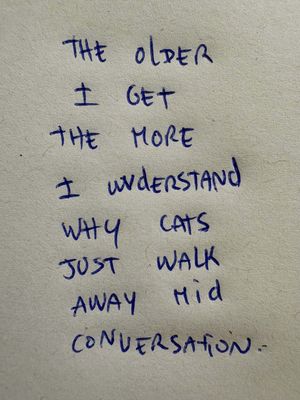 THE OLDER
I GET
THE MORE
I UNDERSTAND
WHY CATS
JUST WALK
AWAY MID
CONVERSATION.-